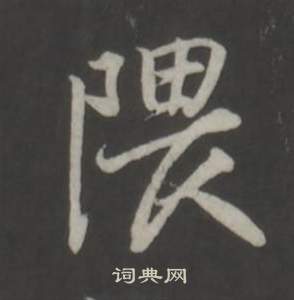 隈
词典网